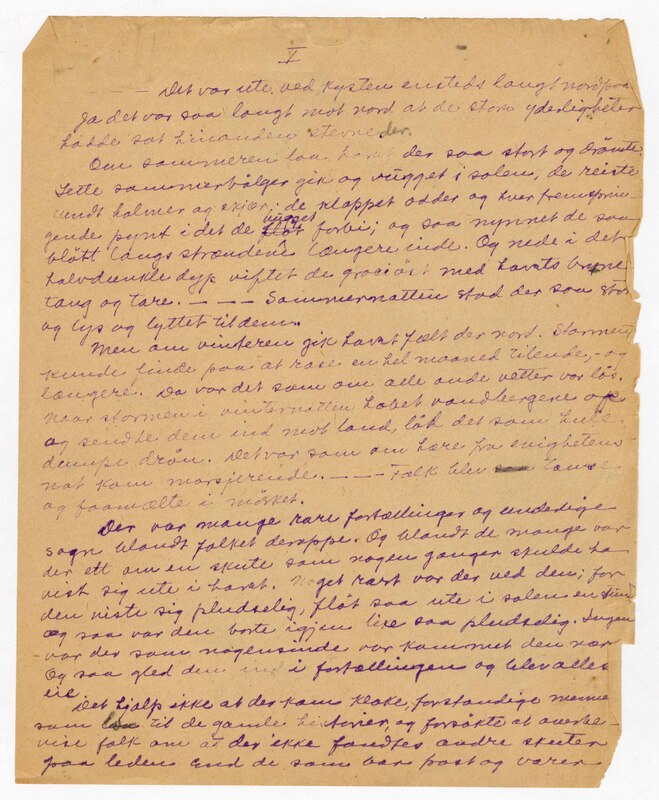 I
— — Det var ute ved kysten ensteds langt nordpaa
Ja det var saa langt mot nord at de store yderligheter
hadde sat hinanden stevne der.
Om sommeren laa havet der saa stort og drömte.
Lette sommerbölger gik og vugget i solen, de reiste
rundt holmer og skjær; de klappet odder og hver fremsprin-
gende pynt idet de vugget forbi; og saa nynnet de saa
blött langs strændene længere inde. Og nede i det
halvdunkle dyp viftet de graciöst med havets brune
tang og tare. — — — Sommernatten stod der saa stor
og lys og lyttet til dem.
Men om vinteren gik havet fælt der nord. Stormen
kunde finde paa at rase en hel maaned tilende, - og
længere. Da var det som om alle onde vetter var lös.
Naar stormen i vinternatten hævet vandbergene op
og sendte dem ind mot land, löd det som hule,
dumpe drön. Det var som om hære fra evighetens
nat kom marsjerende. — — — Folk blev tause
og faamælte i mörket.
Der var mange rare fortællinger og underlige
sagn blandt folket deroppe. Og blandt de mange var
der ett om en skute som nogen ganger skulde ha
vist sig ute i havet. Noget rart var der ved den; for
den viste sig pludselig, flöt saa ute i solen en stund
og saa var den borte igjen like saa pludselig. Ingen
var der som nogensinde var kommet den nær
Og saa gled den ind i fortællingen og blev alles
eie
Det hjalp ikke at der kom kloke, forstandige menne
som lo til de gamle historier, og forsökte at overbe-
vise folk om at der ikke fandtes andre skuter
paa leden end de som bar post og varer